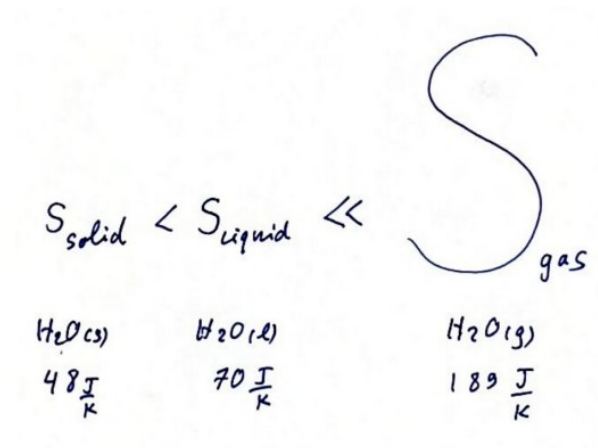 S solid < S liquid << S gas
H2O(s) H2O(l) H2O(g)
48 J/K 70 J/K 189 J/K